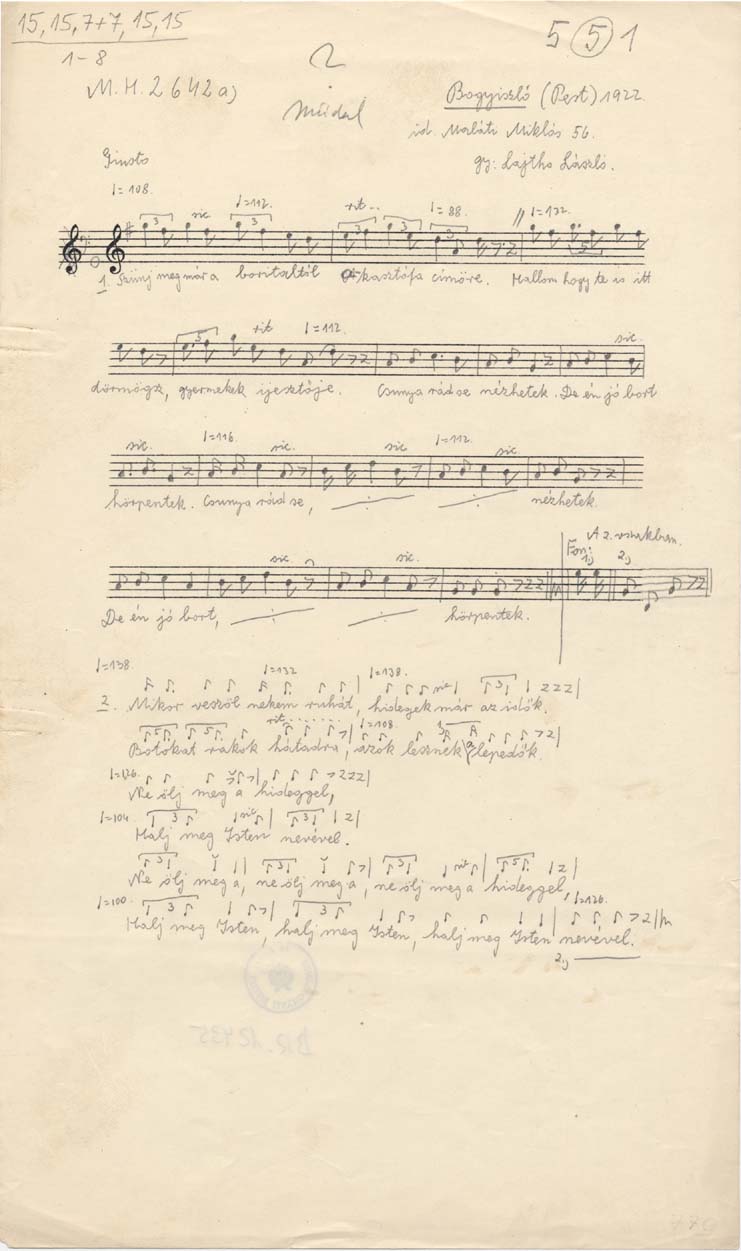 15, 15, 7+7, 15, 15
1-8
5 5 1
M.H. 2642a)
Műdal
Bogyiszló (Pest) 1922.
id. Maláti Miklós 56.
gy: Lajtha László.
Giusto
♩=108.
sic
♩=112.
rit...
♩=88.
♩=132.
1. Szűnj meg már a boritaltól Akasztófa címöre. Hallom hogy te is itt
rit
♩=112.
sic.
dörmögsz, gyermekek ijesztője. Csunya rád se nézhetek. De én jó bort
sic.
♩=116.
sic.
sic
♩=112.
sic.
hörpentek. Csunya rád se, nézhetek.
Az utakban.
Fon:
1,)
2,)
sic
sic.
De én jó bort, hörpentek.
♩=138.
♩=132
♩=138.
2. Mikor veszöl nekem ruhát, hidegek már az idők.
rit.......
♩=108.
Botokat rakok hátadra, azok lesznek a lepedők.
♩=126.
Ne ölj meg a hideggel,
♩=104.
sic
Halj meg Isten nevével.
Ne ölj meg a, ne ölj meg a, ne ölj meg a hideggel,
♩=100.
♩=126.
Halj meg Isten, halj meg Isten, halj meg Isten nevével.
2.)
BR. 12435